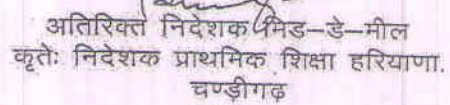 अतिरिक्त निदेशक मिड-डे-मील
कृतेः निदेशक प्राथमिक शिक्षा हरियाणा.
चण्डीगढ़